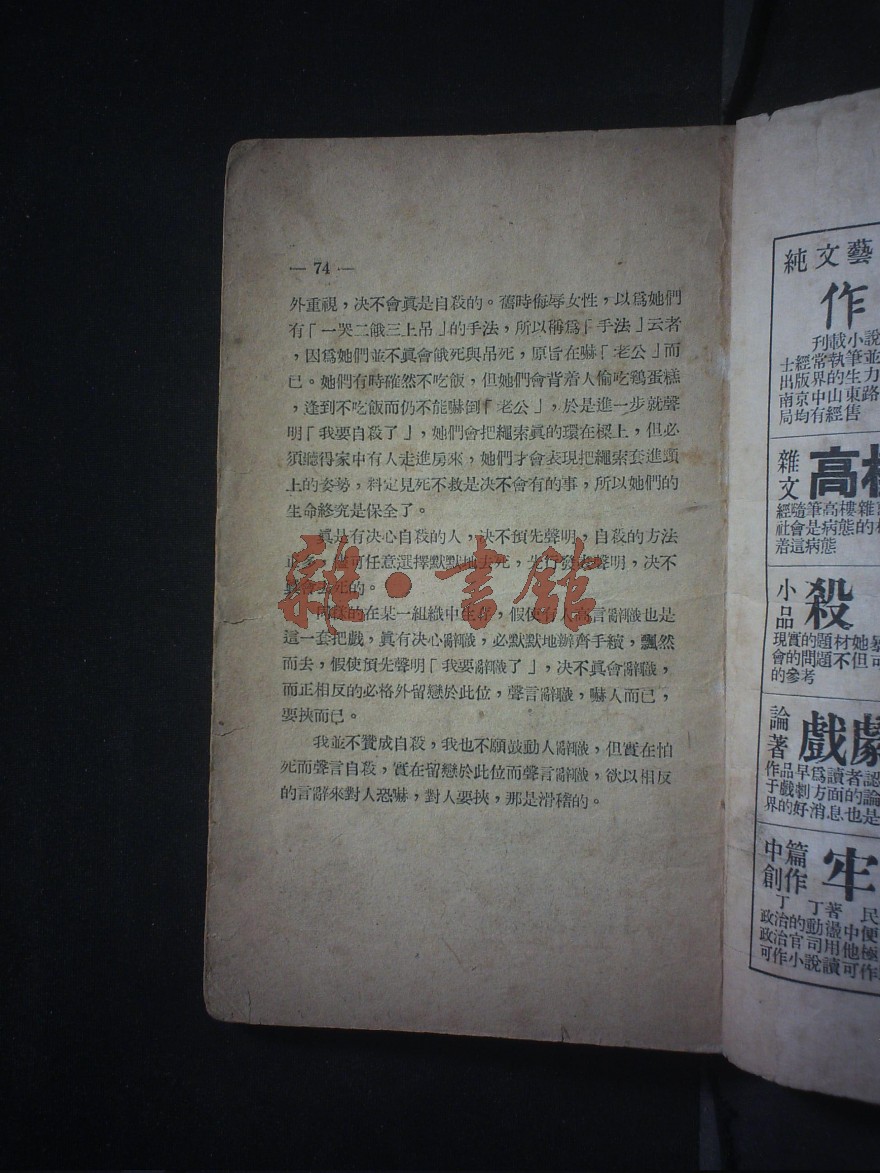 — 74 —
外重視，决不會眞是自殺的。舊時侮辱女性，以爲她們
有「一哭二餓三上吊」的手法，所以稱爲「手法」云者
，因爲她們並不眞會餓死與吊死，原旨在嚇「老公」而
已。她們有時確然不吃飯，但她們會背着人偷吃鷄蛋糕
，逢到不吃飯而仍不能嚇倒「老公」，於是進一步就聲
明「我要自殺了」，她們會把繩索眞的環在樑上，但必
須聽得家中有人走進房來，她們才會表現把繩索套進頭
上的姿勢，料定見死不救是决不會有的事，所以她們的
生命終究是保全了。
眞是有决心自殺的人，决不預先聲明，自殺的方法
多，可任意選擇默默地去死，先行發表聲明，决不
會去死的。
同樣的在某一組織中生存，假使有人高言辭職也是
這一套把戲，眞有决心辭職，必默默地辦齊手續，飄然
而去，假使預先聲明「我要辭職了」，决不眞會辭職，
而正相反的必格外留戀於此位，聲言辭職，嚇人而已，
要挾而已。
我並不贊成自殺，我也不願鼓動人辭職，但實在怕
死而聲言自殺，實在留戀於此位而聲言辭職，欲以相反
的言辭來對人恐嚇，對人要挾，那是滑稽的。
雜·書館
純文藝
作
刊載小說
士經常執筆並
出版界的生力
南京中山東路
局均有經售
雜文
高
經隨筆高樓雜
社會是病態的
着這病態
小品
殺
現實的題材她
會的問題不但可
的參考
論著
戲劇
作品早爲讀者認
于戲剌方面的論
界的好消息也是
中篇創作
牢
丁丁著 民
政治的動盪中便
政治官司用他極
可作小說讀可作